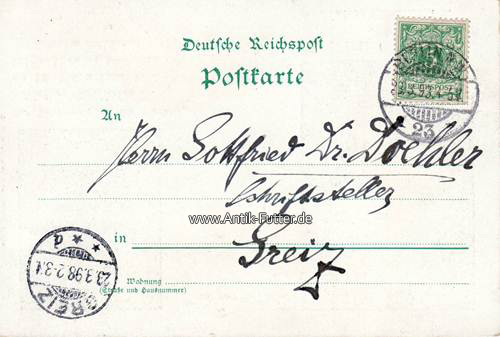 Deutsche Reichspost
Postkarte
REICHSPOST
23
An
Herrn Gottfried Dr. Doehler
Schriftsteller
www.Antik-Futter.de
in Greiz
Wohnung
(Straße und Hausnummer)
GREIZ
23.3.98.2-3.N